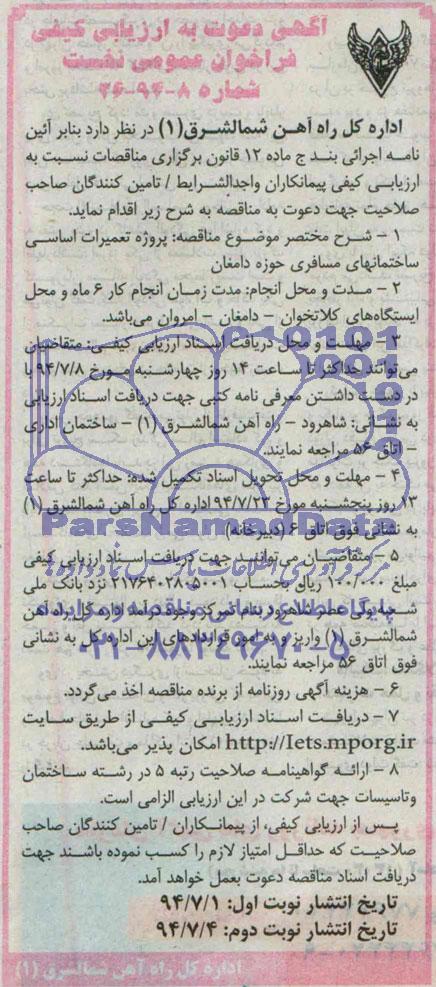 آگهی دعوت به ارزیابی کیفی
فراخوان عمومی نخست
شماره ۸-۹۴-۲۶
اداره کل راه آهن شمالشرق(۱) در نظر دارد بنابر آئین
نامه اجرائی بند ج ماده ۱۲ قانون برگزاری مناقصات نسبت به
ارزیابی کیفی پیمانکاران واجدالشرایط / تامین کنندگان صاحب
صلاحیت جهت دعوت به مناقصه به شرح زیر اقدام نماید.
۱ – شرح مختصر موضوع مناقصه: پروژه تعمیرات اساسی
ساختمانهای مسافری حوزه دامغان
۲ – مدت و محل انجام: مدت زمان انجام کار ۶ ماه و محل
ایستگاه‌های کلاتخوان – دامغان – امروان می‌باشد.
۳ – مهلت و محل دریافت اسناد ارزیابی کیفی: متقاضیان
می‌توانند حداکثر تا ساعت ۱۴ روز چهارشنبه مورخ ۹۴/۷/۸ با
در دست داشتن معرفی نامه کتبی جهت دریافت اسناد ارزیابی
به نشانی: شاهرود – راه آهن شمالشرق (۱) – ساختمان اداری
– اتاق ۵۶ مراجعه نمایند.
۴ – مهلت و محل تحویل اسناد تکمیل شده: حداکثر تا ساعت
۱۳ روز پنجشنبه مورخ ۹۴/۷/۲۳ اداره کل راه آهن شمالشرق (۱)
به نشانی فوق اتاق ۶ (دبیرخانه)
ParsNamadData
۵ – متقاضیان می‌توانند جهت دریافت اسناد ارزیابی کیفی
مبلغ ۱۰۰/۰۰۰ ریال بحساب ۲۱۷۶۴۰۲۸۰۵۰۰۱ نزد بانک ملی
شعبه ولی عصر شاهرود بنام تمرکز وجوه درآمد اداره کل راه آهن
شمالشرق (۱) واریز و به امور قراردادهای این اداره کل به نشانی
فوق اتاق ۵۶ مراجعه نمایند.
۰۲۱-۸۸۳۴۹۶۷۰-۵
۶ – هزینه آگهی روزنامه از برنده مناقصه اخذ می‌گردد.
۷ – دریافت اسناد ارزیابی کیفی از طریق سایت
http://Iets.mporg.ir امکان پذیر می‌باشد.
۸ – ارائه گواهینامه صلاحیت رتبه ۵ در رشته ساختمان
وتاسیسات جهت شرکت در این ارزیابی الزامی است.
پس از ارزیابی کیفی، از پیمانکاران / تامین کنندگان صاحب
صلاحیت که حداقل امتیاز لازم را کسب نموده باشند جهت
دریافت اسناد مناقصه دعوت بعمل خواهد آمد.
تاریخ انتشار نوبت اول: ۹۴/۷/۱
تاریخ انتشار نوبت دوم: ۹۴/۷/۴
اداره کل راه آهن شمالشرق (۱)